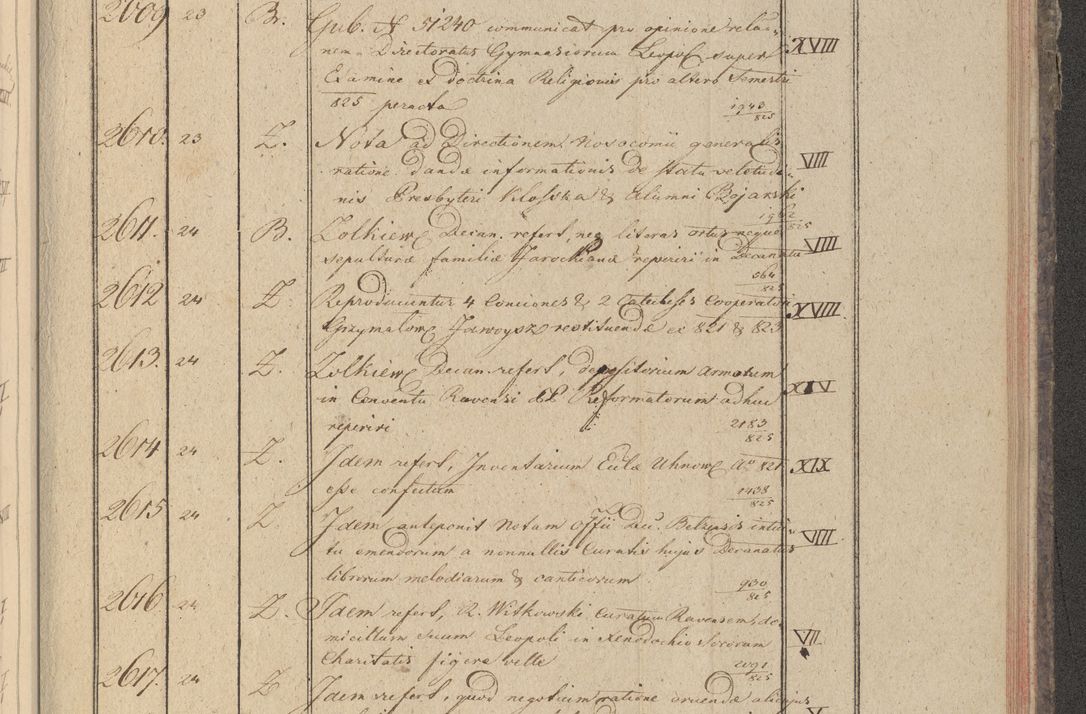 2609 23 Br. Gub. N 51240 communicat pro opinione rela-
nem Directoratus Gymnasiorum Leopol super XVIII
Examine ex doctrina Religionis pro altero Semestri
825 peracto 1943/825
2610. 23 Z. Nota ad Directionem Nosocomii generalis
ratione dandae informationis de statu valetudi- VIII
nis Presbyteri Klosska & Alumni Bojarski
1962/825
2611. 24 B. Zolkiew Decan. refert, neq literas ortus neque
sepulturae familiae Jarockianae reperiri in Decanatu VIII
564/825
2612 24 Z. Reproducuntur 4 Conciones & 2 Catecheses Cooperatori XVIII
Grzymalow Jaworysz restituendae ex 821 & 823
2613. 24 Z. Zolkiew Decan. refert, depositorium armorum
in Conventu Ravensi PP Reformatorum adhuc XIV
reperiri 2183/825
2614 24 Z. Idem refert, Inventarium Eccłae Uhnow Ao 821 XIX
esse confectum 1438/825
2615 24 Z. Idem anteponit Notam Offii Dec. Belzensis intui-
tu emendorum a nonnullis Curatis hujus Decanatus VIII
librorum melodiarum & canticorum 930/825
2616 24 Z. Idem refert, R. Witkowski Curatum Ravensem, do-
micilium suum Leopoli in Xenodochio Sororum VII
Charitatis figere velle 2091/825
2617. 24 Z Idem refert, quod negotium ratione eruendae alicujus